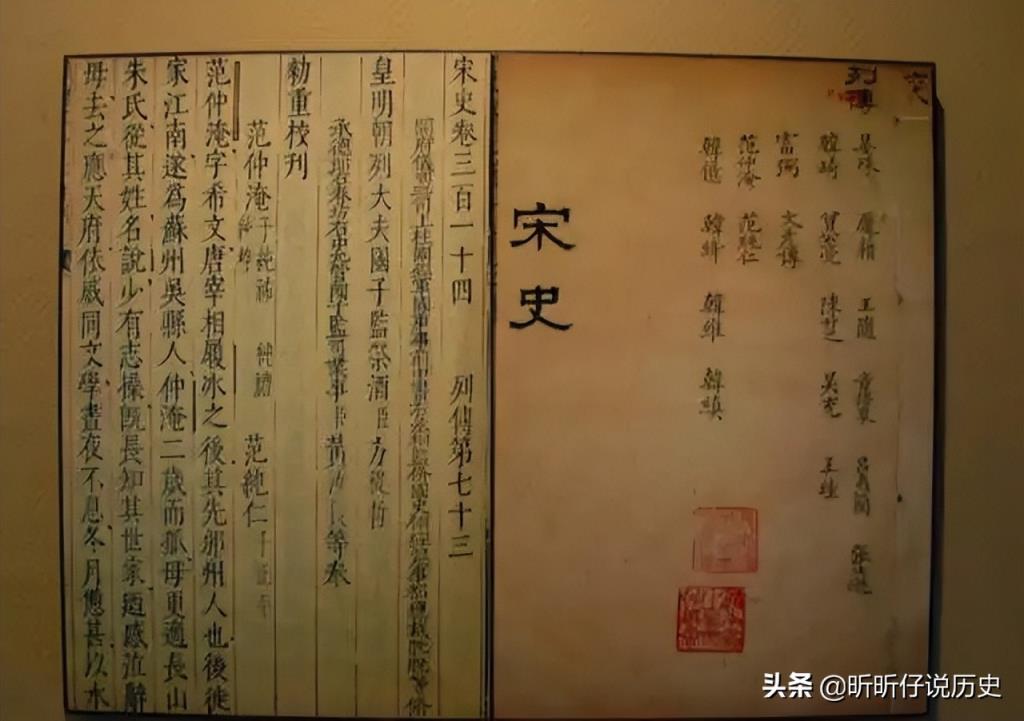 列傳
晏殊 龐籍 王隨 章得象 呂夷簡
韓琦 曾公亮 陳升之 吳充 王珪
富弼 文彥博
范仲淹 范純仁
韓億 韓絳 韓維 韓縝
宋史
宋史卷三百一十四 列傳第七十三
皇明朝列大夫國子監祭酒臣方從哲
承德郎右春坊右中允管國子監司業事臣黃汝良等奉
勅重校刊
范仲淹 子純祐 純禮 純粹 范純仁 子正平
范仲淹字希文唐宰相履冰之後其先邠州人也後徙
家江南遂爲蘇州吳縣人仲淹二歲而孤母更適長山
朱氏從其姓名說少有志操旣長知其世家迺感泣辭
母去之應天府依戚同文學晝夜不息冬月憊甚以水
头条 @昕昕仔说历史